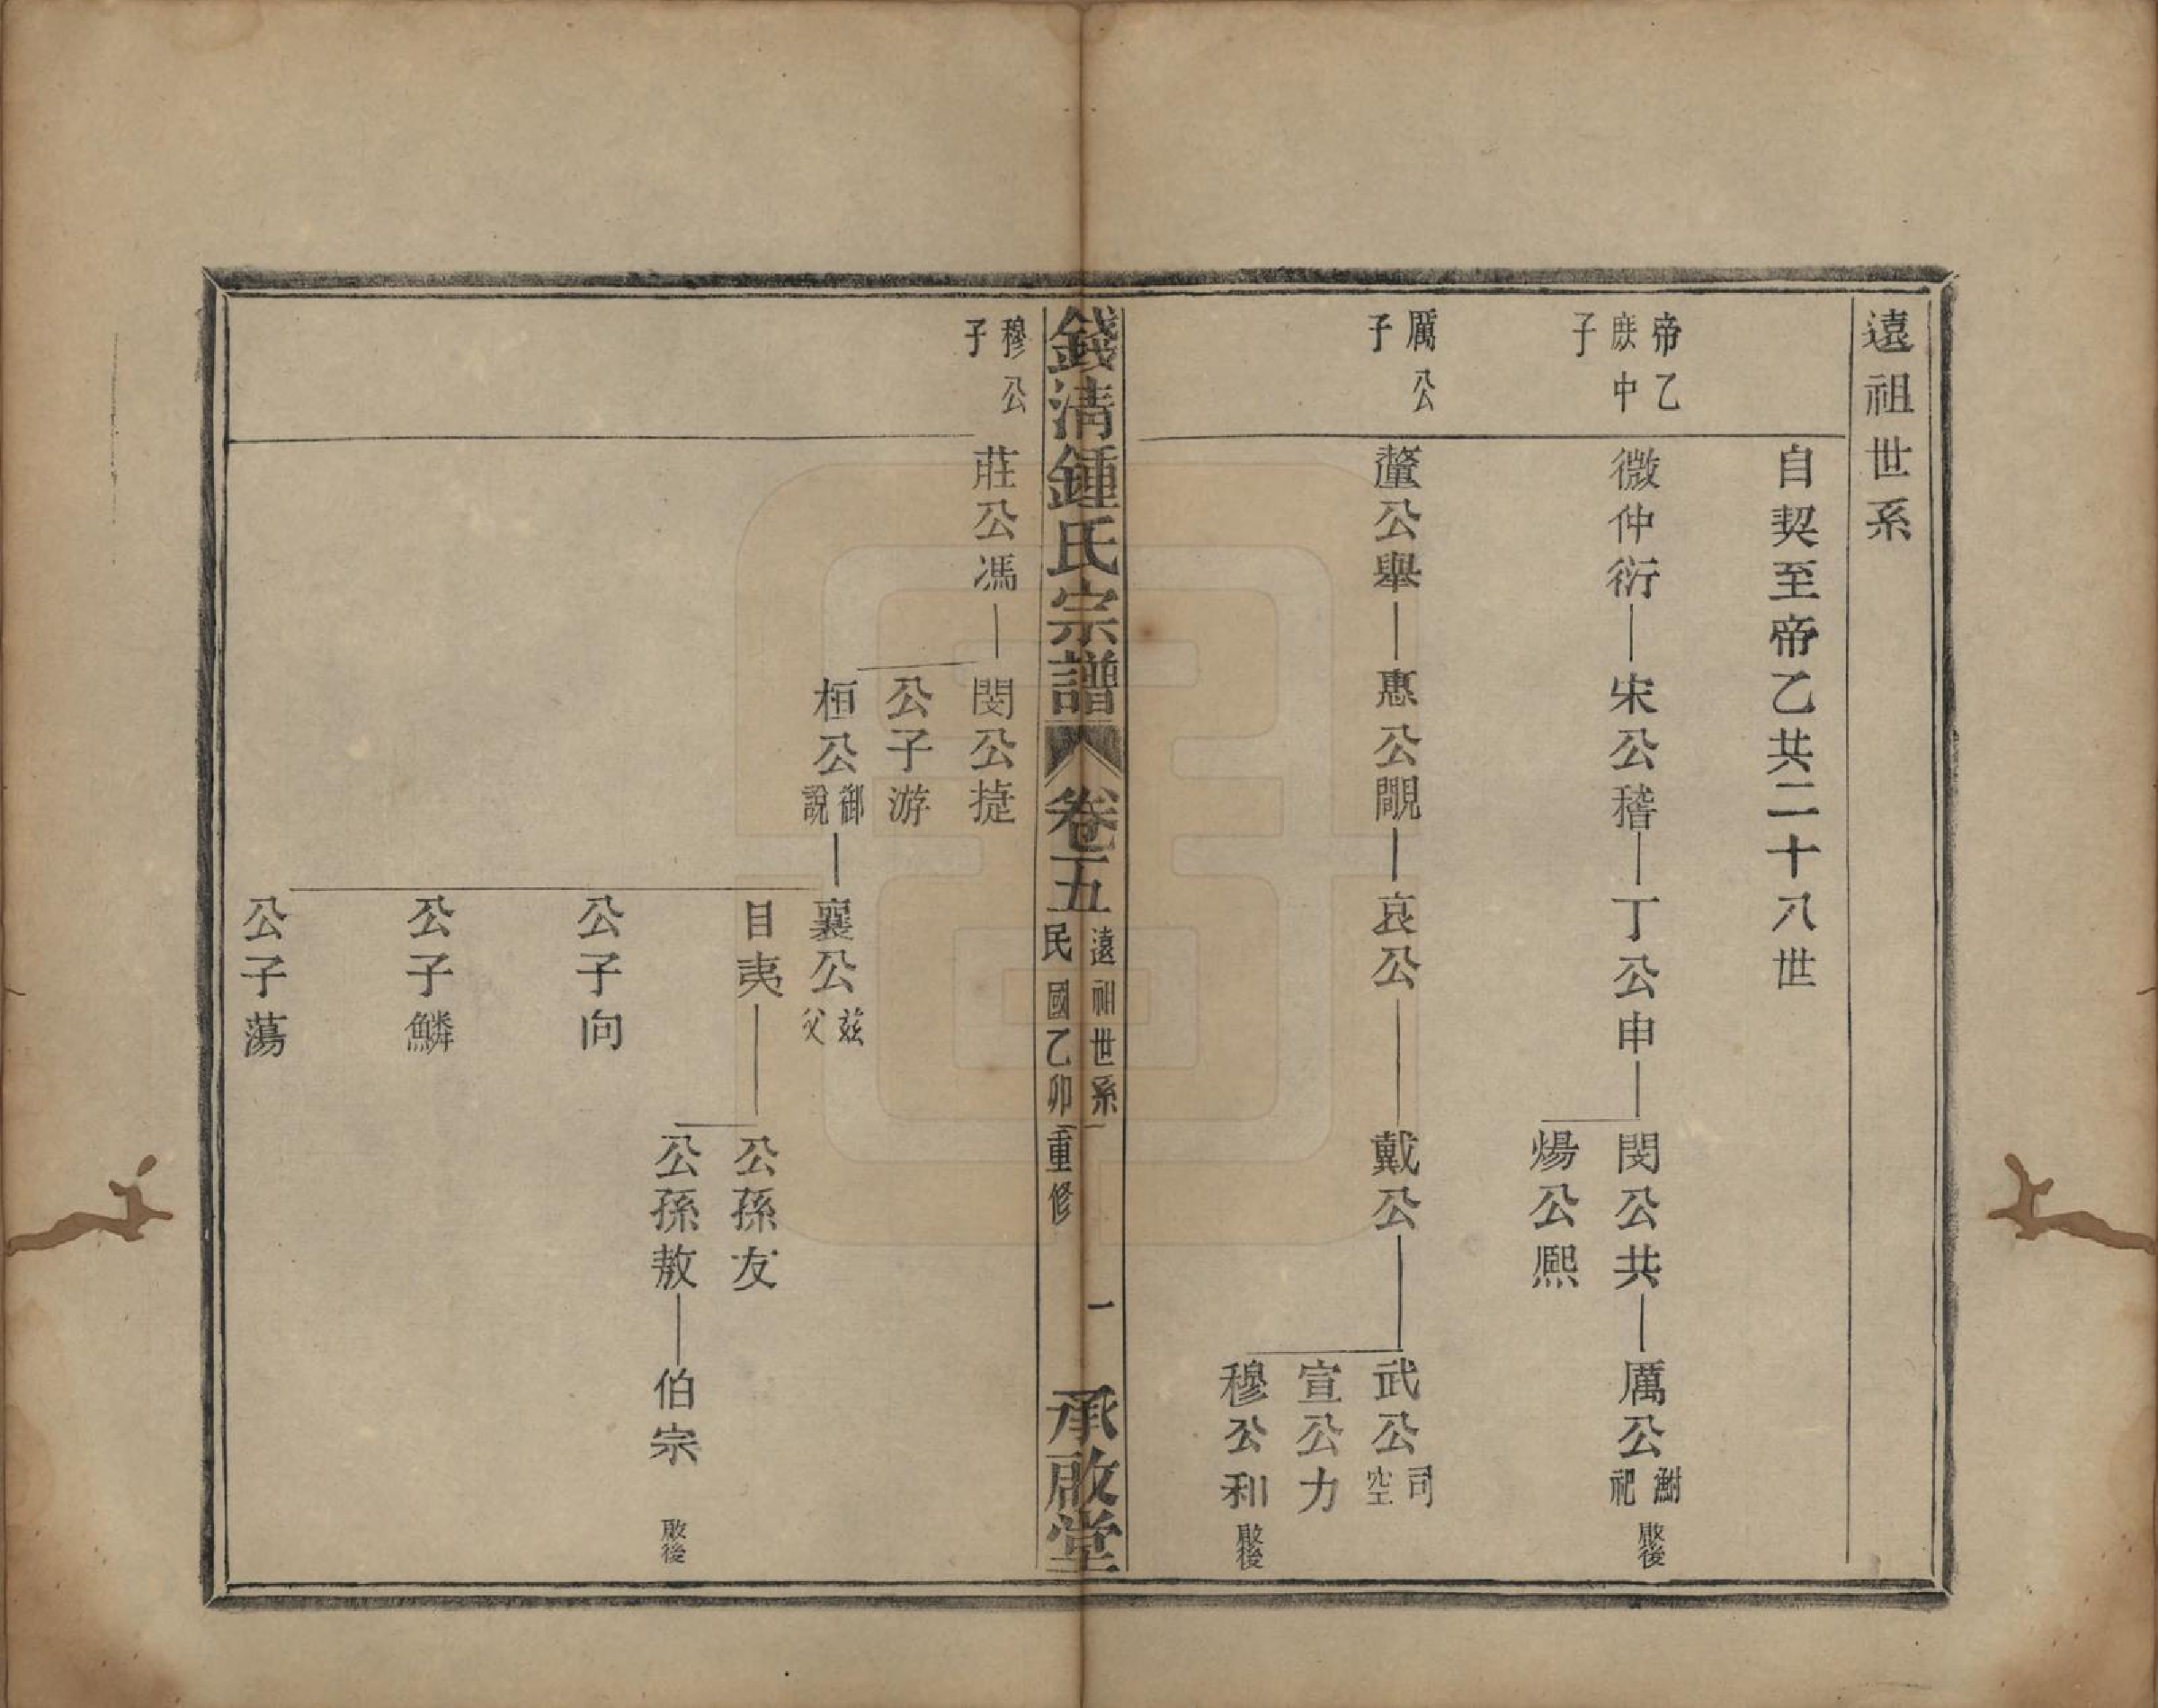 遠祖世系
自契至帝乙共二十八世
帝乙
庶中
子
微仲衍
宋公稽
丁公申
閔公共
煬公熙
厲公
鮒
祀
啟後
厲公
子
釐公舉
惠公覵
哀公
戴公
武公
司
空
宣公力
穆公和
啟後
錢清鍾氏宗譜
卷五
遠祖世系
民國乙卯重修
一
承啟堂
穆公
子
莊公馮
閔公捷
公子游
桓公
御
說
襄公
茲
父
目夷
公子向
公子鱗
公子蕩
公孫友
公孫敖
伯宗
啟後